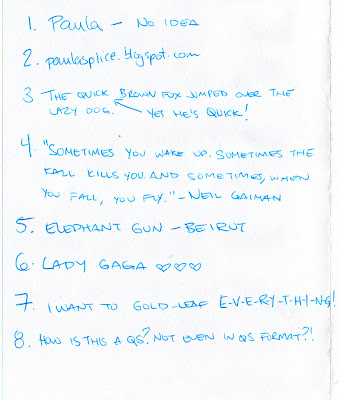 1. Paula - NO IDEA
2. paulasplice.blogspot.com
3 THE QUICK BROWN FOX JUMPED OVER THE
LAZY DOG. YET HE'S QUICK!
4 "SOMETIMES YOU WAKE UP. SOMETIMES THE
FALL KILLS YOU. AND SOMETIMES, WHEN
YOU FALL, YOU FLY." - NEIL GAIMAN
5. ELEPHANT GUN - BEIRUT
6. LADY GAGA ♡♡♡
7. I WANT TO GOLD-LEAF E-V-E-R-Y-T-H-I-N-G!
8. HOW IS THIS A QS? NOT EVEN IN QS FORMAT?!